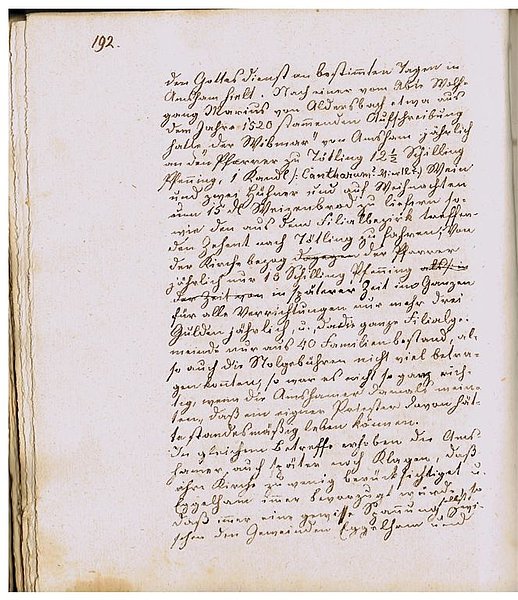 192.
den Gottesdienst an bestimmten Tagen in
Amsham hielt. Nach einer vom Abte Wolf-
gang Marius von Aldersbach etwa aus
dem Jahre 1520 stammenden Aufschreibung
hatte "der Widmar" von Amsham jährlich
an den Pfarrer zu Tötling 12½ Schilling
Pfenning, 1 Kandl (: Cantharum: vini) Wein
und zwei Hühner und auf Weihnachten
um 15 dl Weizenbrod zu liefern so-
wie den aus dem Filialbezirk treffen-
den Zehent nach Tötling zu fahren; Von
der Kirche bezog dagegen der Pfarrer
jährlich nur 13 Schilling Pfenning also in
der Zeit von in späterer Zeit im Ganzen
für alle Verrichtungen nur mehr drei
Gulden jährlich u. da die ganze Filialge-
meinde nur aus 40 Familien bestand, al-
so auch die Stolgebühren nicht viel betra-
gen konnten, so war es nicht so ganz rich-
tig, wenn die Amshamer damals mein-
ten, daß ein eigner Priester davon hät-
te standesmäßig leben können.
In gleichem Betreffe erhoben die Ams-
hamer, auch später noch Klagen, daß
ihre Kirche zu wenig berücksichtiget u.
Egglham immer bevorzugt würde, so
daß immer eine gewisse Spannung zwi-
schen den Gemeinden Egglham und